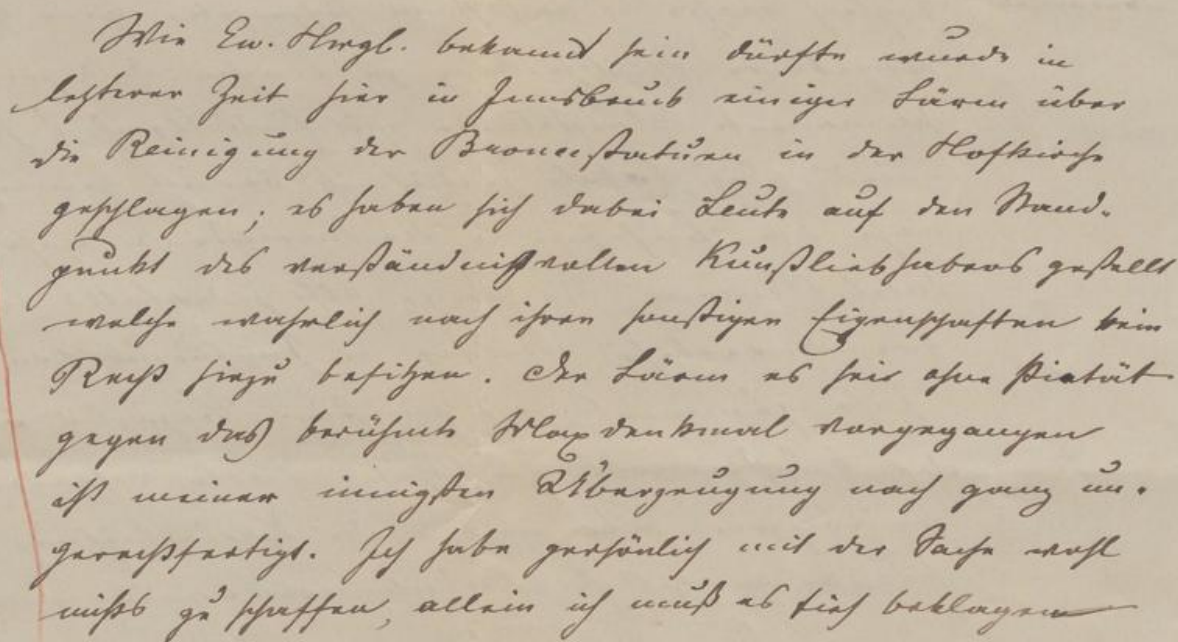 Wie Ew. Hwgb. bekannt sein dürfte wurde in
letzterer Zeit hier in Innsbruck einiger Lärm über
die Reinigung der Broncestatuen in der Hofkirche
geschlagen; es haben sich dabei Leute auf den Stand-
punkt des verständnißvollen Kunstliebhabers gestellt
welche wahrlich nach ihren sonstigen Eigenschaften kein
Recht hiezu besitzen. Der Lärm es sei ohne Pietät
gegen das berühmte Maxdenkmal vorgegangen
ist meiner innigsten Überzeugung nach ganz un-
gerechtfertigt. Ich habe persönlich mit der Sache wohl
nichts zu schaffen, allein ich muß es tief beklagen